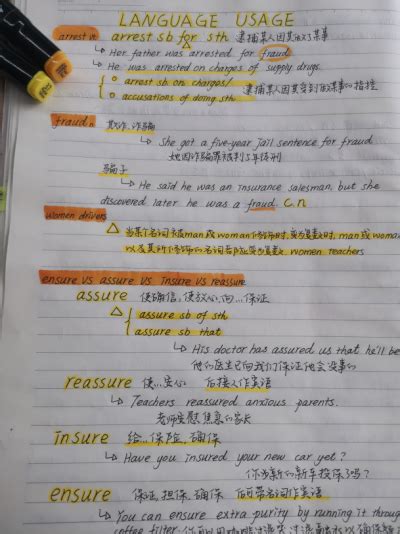 LANGUAGE USAGE
arrest vt. arrest sb for sth 逮捕某人因其做了某事
↳ Her father was arrested for fraud.
↳ He was arrested on charges of supply drugs.
arrest sb on charges/
accusations of doing sth 逮捕某人因其受到做某事的指控
fraud n. 欺诈、诈骗
↳ She got a five-year jail sentence for fraud
她因诈骗罪被判5年徒刑
骗子
↳ He said he was an insurance salesman, but she
discovered later he was a fraud. C.n
women drivers
当某个名词被man或woman修饰时,变为复数时, man或woman
以及其所修饰的名词都应变为复数. women teachers
ensure VS assure VS insure VS reassure
assure 使确信,使放心,向…保证
assure sb of sth
assure sb that
↳ His doctor has assured us that he'll be
他的医生已向我们保证他会没事的
reassure 使…安心 后接人作宾语
↳ Teachers reassured anxious parents.
老师安慰焦急的家长
insure 给…保险,确保
↳ Have you insured your new car yet?
你为新的新车投保了吗?
ensure 保证,担保,确保 后可带名词作宾语
↳ You can ensure extra purity by running it through
coffee filter. 你可以用咖啡过滤